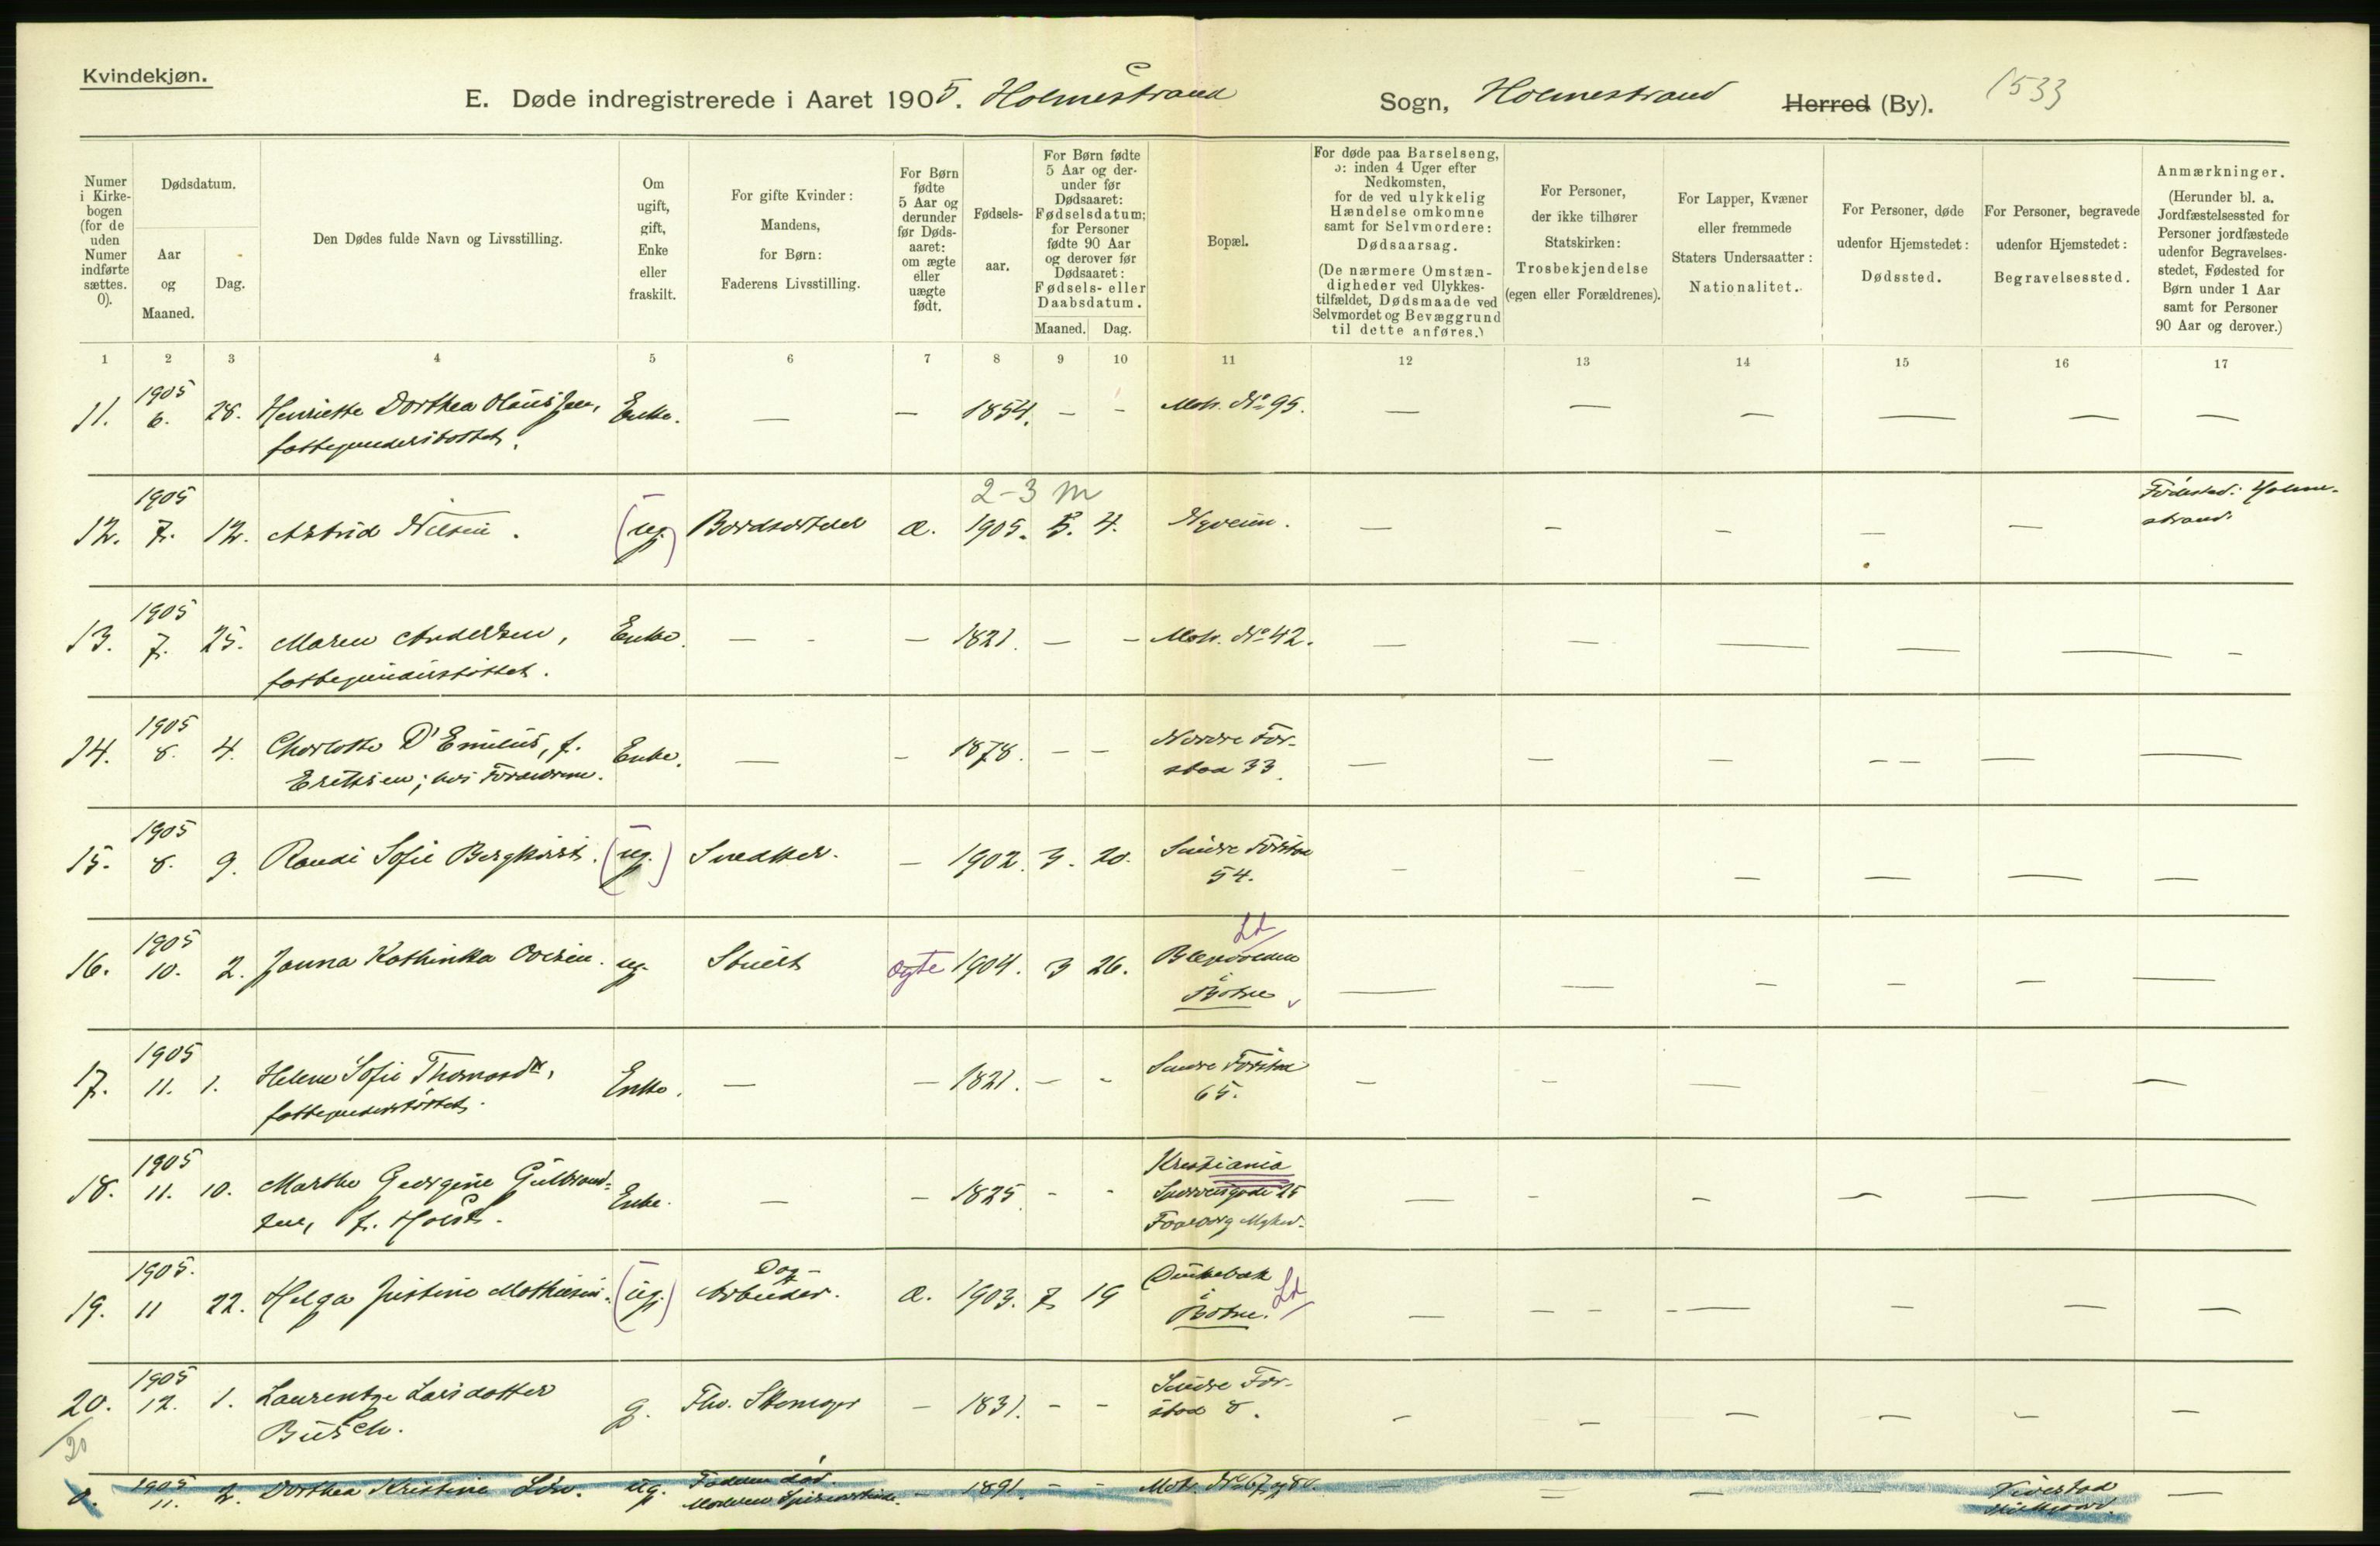 Kvindekjøn.
E. Døde indregistrerede i Aaret 1905. Holmestrand Sogn, Holmestrand Herred (By). 1533
Numer i Kirkebogen (for de uden Numer indførte sættes. 0).
Dødsdatum.
Aar og Maaned.
Dag.
Den Dødes fulde Navn og Livsstilling.
Om ugift, gift, Enke eller fraskilt.
For gifte Kvinder: Mandens, for Børn: Faderens Livsstilling.
For Børn fødte 5 Aar og derunder før Dødsaaret: om ægte eller uægte født.
Fødselsaar.
For Børn fødte 5 Aar og derunder før Dødsaaret: Fødselsdatum; for Personer fødte 90 Aar og derover før Dødsaaret: Fødsels- eller Daabsdatum.
Maaned. Dag.
Bopæl.
For døde paa Barselseng, ɔ: inden 4 Uger efter Nedkomsten, for de ved ulykkelig Hændelse omkomne samt for Selvmordere: Dødsaarsag.
(De nærmere Omstændigheder ved Ulykkestilfældet, Dødsmaade ved Selvmordet og Bevæggrund til dette anføres.)
For Personer, der ikke tilhører Statskirken: Trosbekjendelse (egen eller Forældrenes).
For Lapper, Kvæner eller fremmede Staters Undersaatter: Nationalitet.
For Personer, døde udenfor Hjemstedet: Dødssted.
For Personer, begravede udenfor Hjemstedet: Begravelsessted.
Anmærkninger.
(Herunder bl. a. Jordfæstelsessted for Personer jordfæstede udenfor Begravelsesstedet, Fødested for Børn under 1 Aar samt for Personer 90 Aar og derover.)
1 2 3 4 5 6 7 8 9 10 11 12 13 14 15 16 17
11. 1905 6. 28. Henriette Dorthea Olausen, Enke. — — 1854. — — Matr. No 95. — — — — — —
fattigunderstøttet.
2-3 m
12. 1905 7. 12. Astrid Nilsen. (ug.) Bordsorterer æ. 1905. 5. 4. Nyveien. — — — — — Fødested: Holmestrand.
13. 1905 7. 25. Maren Andersen, Enke. — — — 1821. — — Matr. No 42. — — — — — —
fattigunderstøttet.
14. 1905 8. 4. Charlotte D'Emilius, f. Enke. — — 1878. — — Nordre For-
Eriksen; hos Forældrene. stad 33. — — — — — —
15. 1905 8. 9. Randi Sofie Bergkvist. (ug.) Snedker. — 1902. 3. 20. Søndre Forstad
54. — — — — — —
16. 1905 10. 2. Janna Kathinka Ovesen. ug. Stuert ægte 1904. 3 26. Ld
i Botne — — — — — —
17. 1905 11. 1. Helene Sofie Thomasdtr, Enke. — — 1821. — — Søndre Forstad
fattigunderstøttet. 65. — — — —
18. 1905 11. 10. Marthe Georgine Gulbrand- Enke. — — 1825. — — Kristiania
sen, f. Holst. 25 — — — — — —
19. 1905. 11 22. Helga Justine Mathisen. (ug.) Dag-
Arbeider. æ. 1903. 7. 19 i Botne. Ld — — — — — —
20. 1905 12. 1. Laurentze Larsdatter g. Thv. — 1831. — — Søndre For-
Busch. stad 8. — — — — — —
20
0. 1905 11. 2. Dorthea Kristine ug. Faderen død
Moderen — 1891. — — Matr. No — — — — —